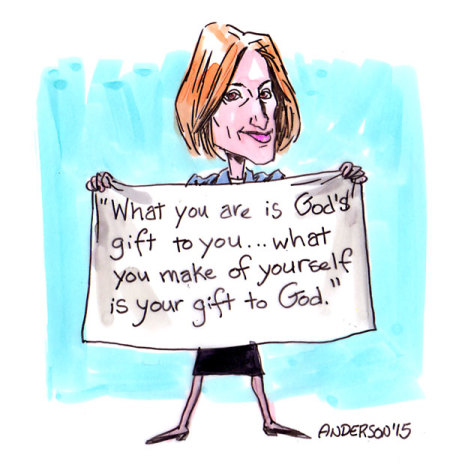 "What you are is God's"
gift to you...what
you make of yourself
is your gift to God."
ANDERSON'15